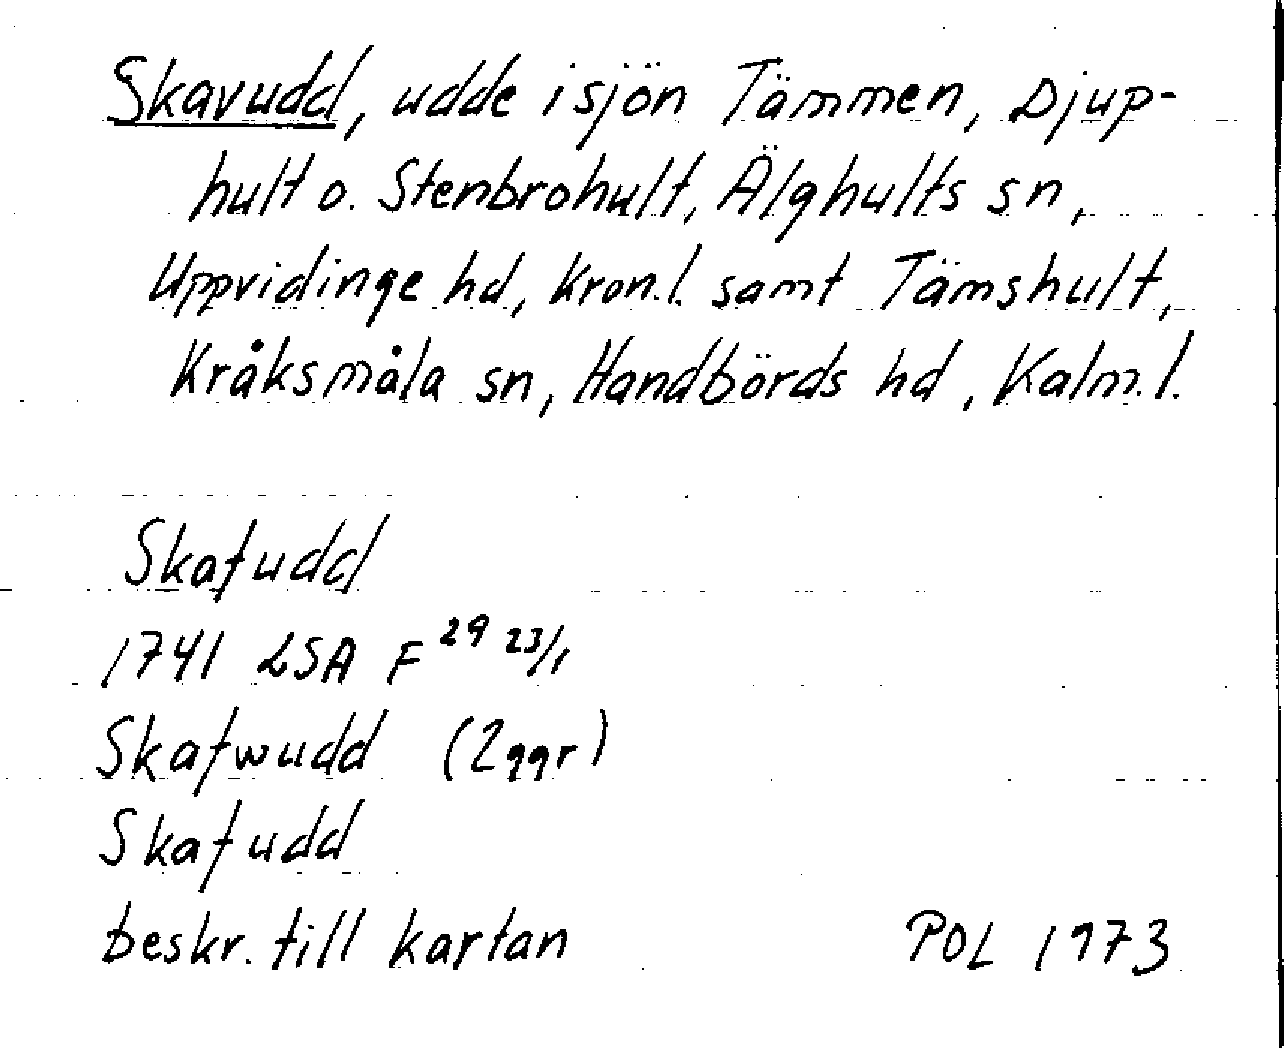 Skavudd, udde i sjön Tämmen, Djup-
hult o. Stenbrohult, Älghults sn,
Uppvidinge hd, Kron.l. samt Tämshult,
Kråksmåla sn, Handbörds hd, Kalm.l.
Skafudd
1741 LSA F 29 23/1
Skafwudd (2 ggr)
Skafudd
beskr. till kartan POL 1973